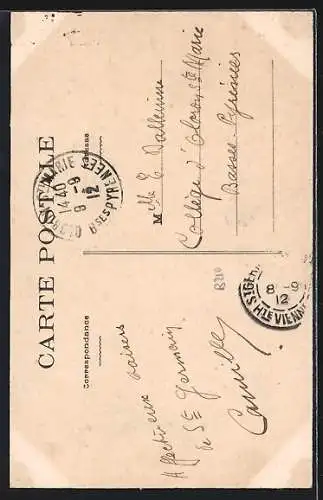 CARTE POSTALE
Correspondance
Adresse
Affectueux baisers
de St Germain
Camille
B210
Mlle E.
Collège d'Oloron Ste Marie
Basses Pyrénées
14 40
9 -9
12
BSES PYRENEES
8 -9
12
HTE VIENNE